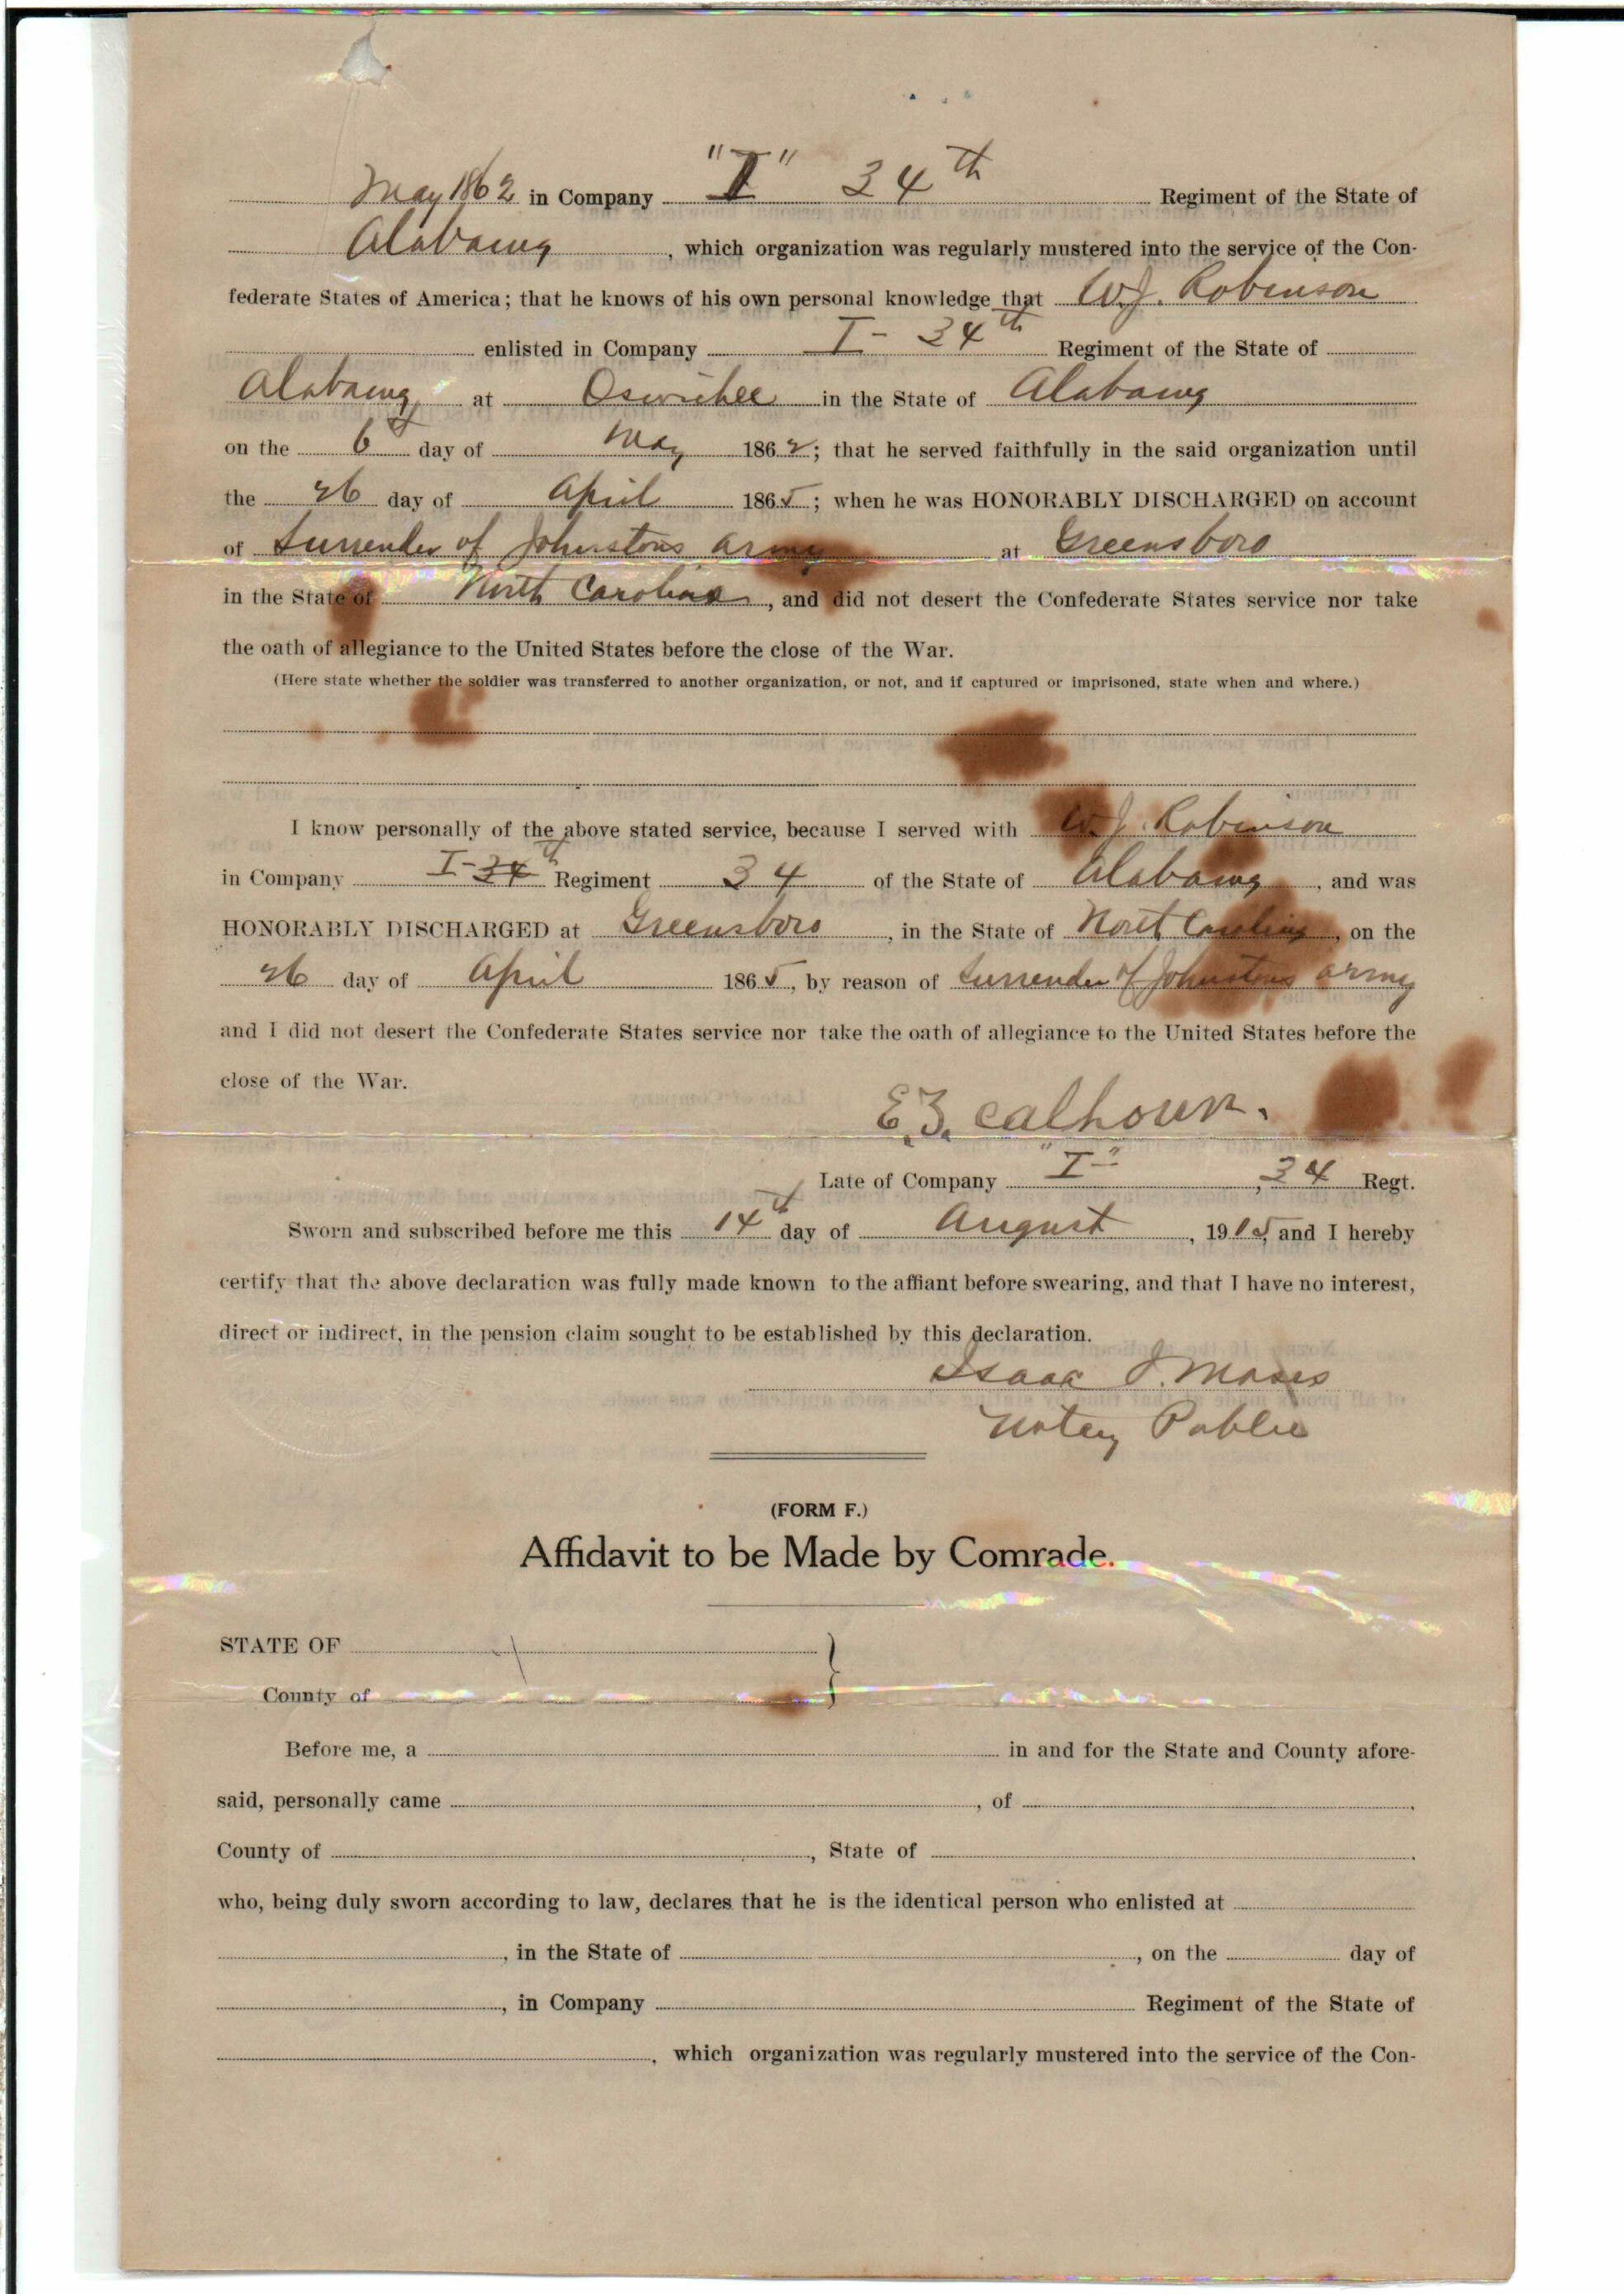 May 1862 in Company "I" 34th Regiment of the State of
Alabama, which organization was regularly mustered into the service of the Con-
federate States of America; that he knows of his own personal knowledge that W.J. Robinson
enlisted in Company I - 34th Regiment of the State of
Alabama at Oswichee in the State of Alabama
on the 6th day of May 1862; that he served faithfully in the said organization until
the 26 day of April 1865; when he was HONORABLY DISCHARGED on account
of Surrender of Johnstons army at Greensboro
in the State of North Carolina, and did not desert the Confederate States service nor take
the oath of allegiance to the United States before the close of the War.
(Here state whether the soldier was transferred to another organization, or not, and if captured or imprisoned, state when and where.)
I know personally of the above stated service, because I served with W J. Robinson
in Company I - 34th Regiment 34 of the State of Alabama, and was
HONORABLY DISCHARGED at Greensboro, in the State of North Carolina, on the
26 day of April 1865, by reason of Surrender of Johnstons army
and I did not desert the Confederate States service nor take the oath of allegiance to the United States before the
close of the War.
E.Z. Calhoun.
Late of Company "I", 34 Regt.
Sworn and subscribed before me this 14th day of August, 1915, and I hereby
certify that the above declaration was fully made known to the affiant before swearing, and that I have no interest,
direct or indirect, in the pension claim sought to be established by this declaration.
Isaac I. Moses
Notary Public
(FORM F.)
Affidavit to be Made by Comrade.
STATE OF
County of
Before me, a in and for the State and County afore-
said, personally came , of .
County of , State of .
who, being duly sworn according to law, declares that he is the identical person who enlisted at
, in the State of , on the day of
, in Company Regiment of the State of
, which organization was regularly mustered into the service of the Con-